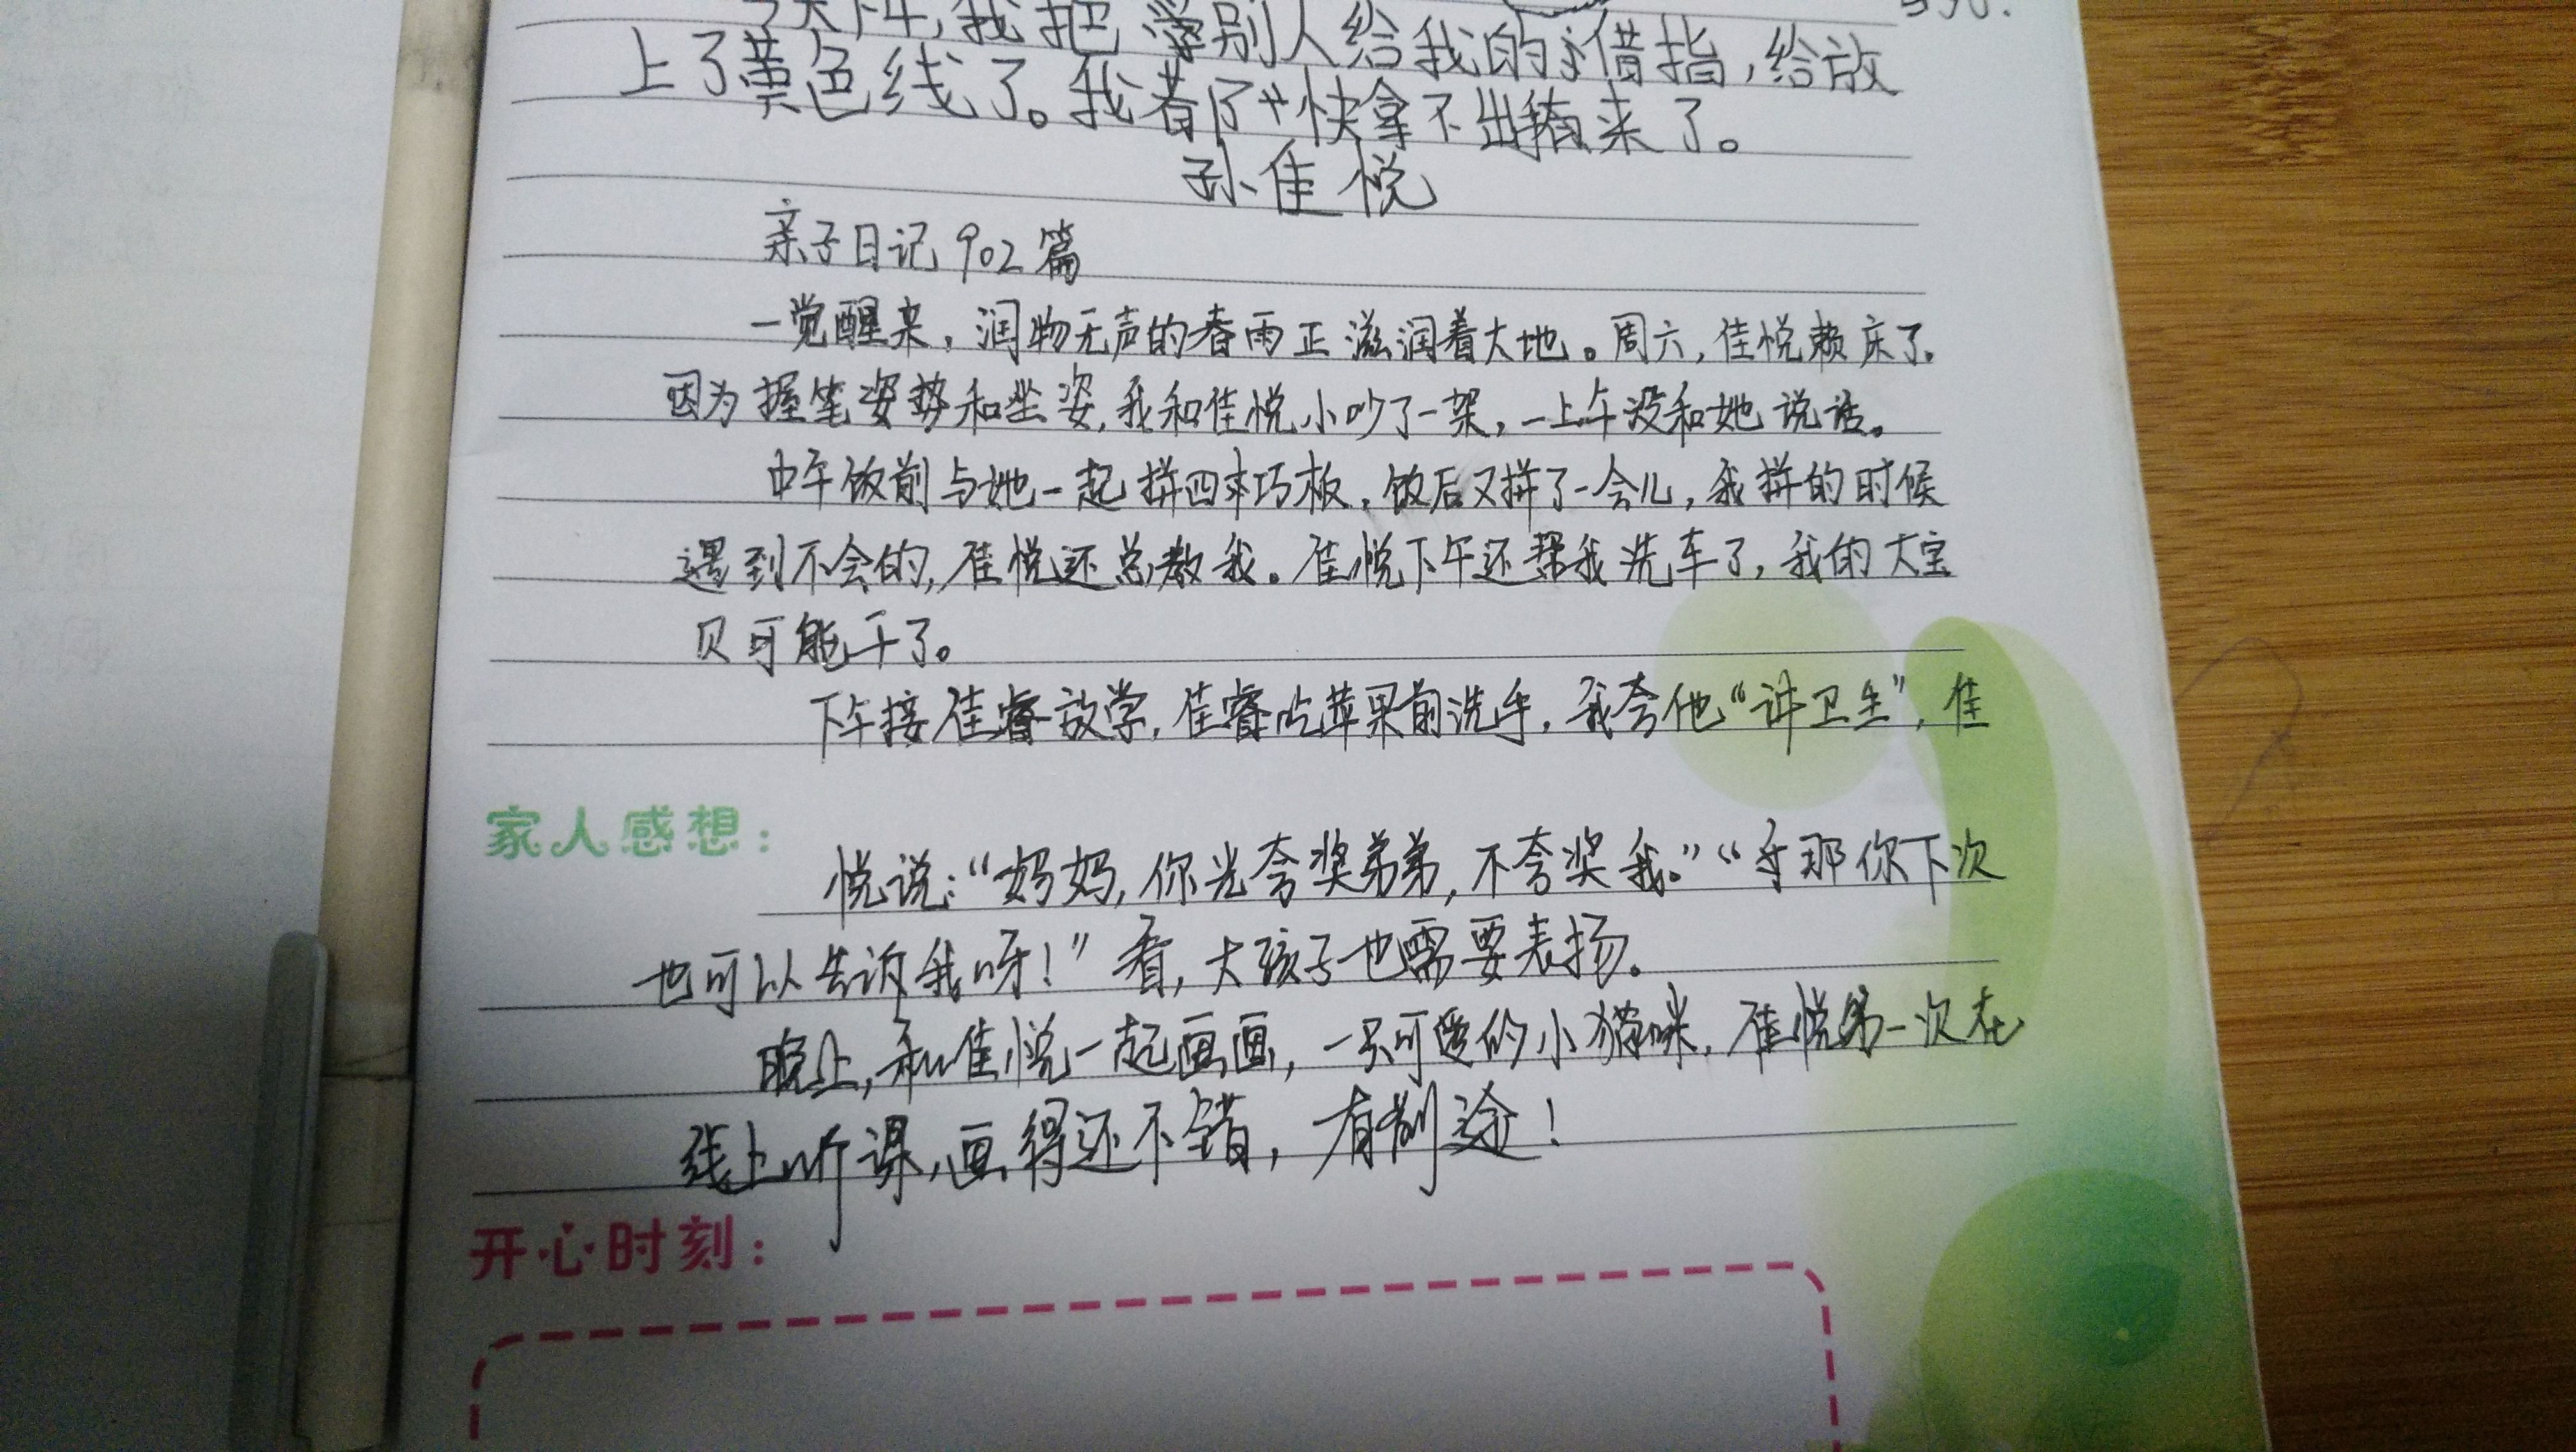 今天下午,我把 别人给我的戒指,给放
上了黄色线了。我着 快拿不出来了。
孙佳悦
亲子日记 902 篇
一觉醒来,润物无声的春雨正滋润着大地。周六,佳悦赖床了。
因为握笔姿势和坐姿,我和佳悦小吵了一架,一上午没和她说话。
中午饭前与她一起拼四巧板,饭后又拼了一会儿,我拼的时候
遇到不会的,佳悦还总教我。佳悦下午还帮我洗车了,我的大宝
贝可能干了。
下午接佳睿放学,佳睿吃苹果前洗手,我夸他“讲卫生”,佳
家人感想:
悦说:“妈妈,你光夸奖弟弟,不夸奖我。”“那你下次
也可以告诉我呀!”看,大孩子也需要表扬。
晚上,和佳悦一起画画,一只可爱的小猫咪,佳悦第一次在
线上听课,画得还不错,有前途!
开心时刻: